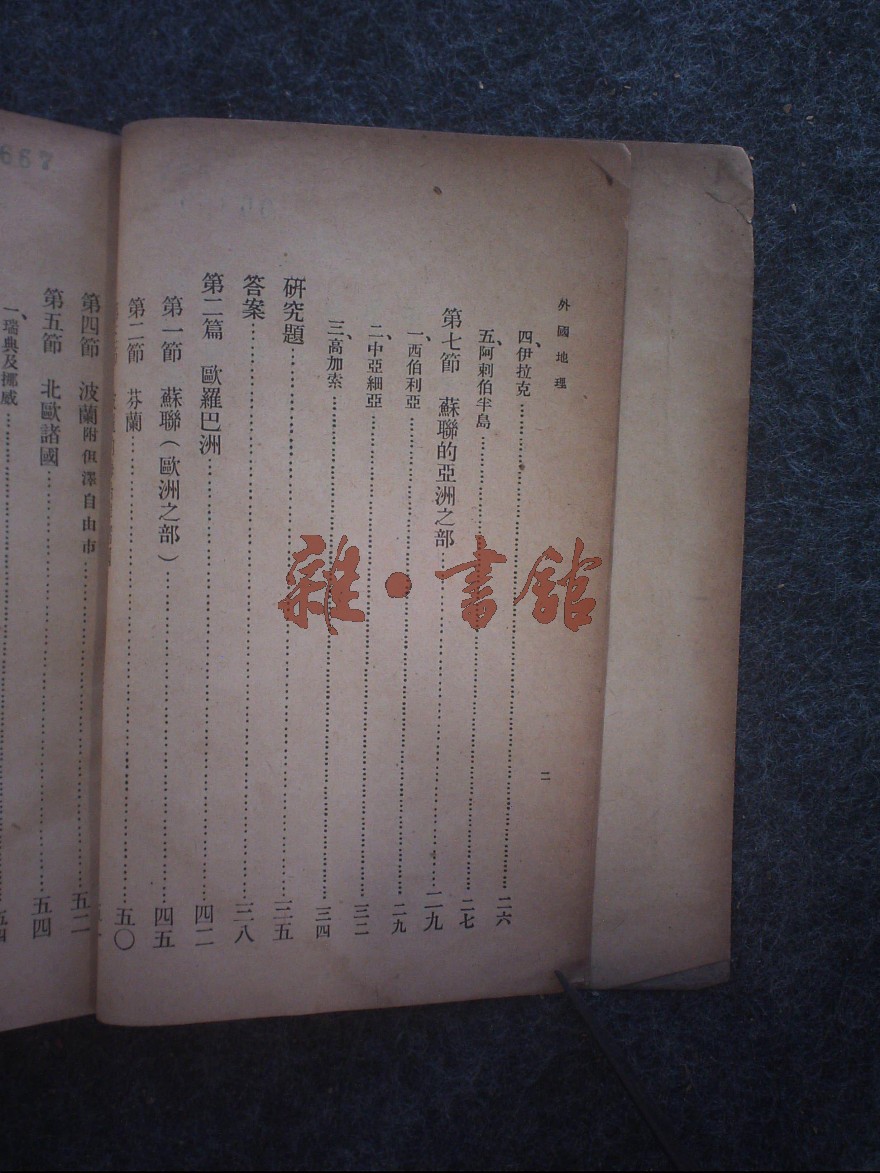 外國地理
二
四、伊拉克……二六
五、阿剌伯半島……二七
第七節 蘇聯的亞洲之部……二九
一、西伯利亞……二九
二、中亞細亞……三二
三、高加索……三四
研究題……三五
答案……三八
第二篇 歐羅巴洲……四二
第一節 蘇聯(歐洲之部)……四五
第二節 芬蘭……五〇
第四節 波蘭附但澤自由市……五二
第五節 北歐諸國……五四
一、瑞典及挪威……五四
667
雜·書館